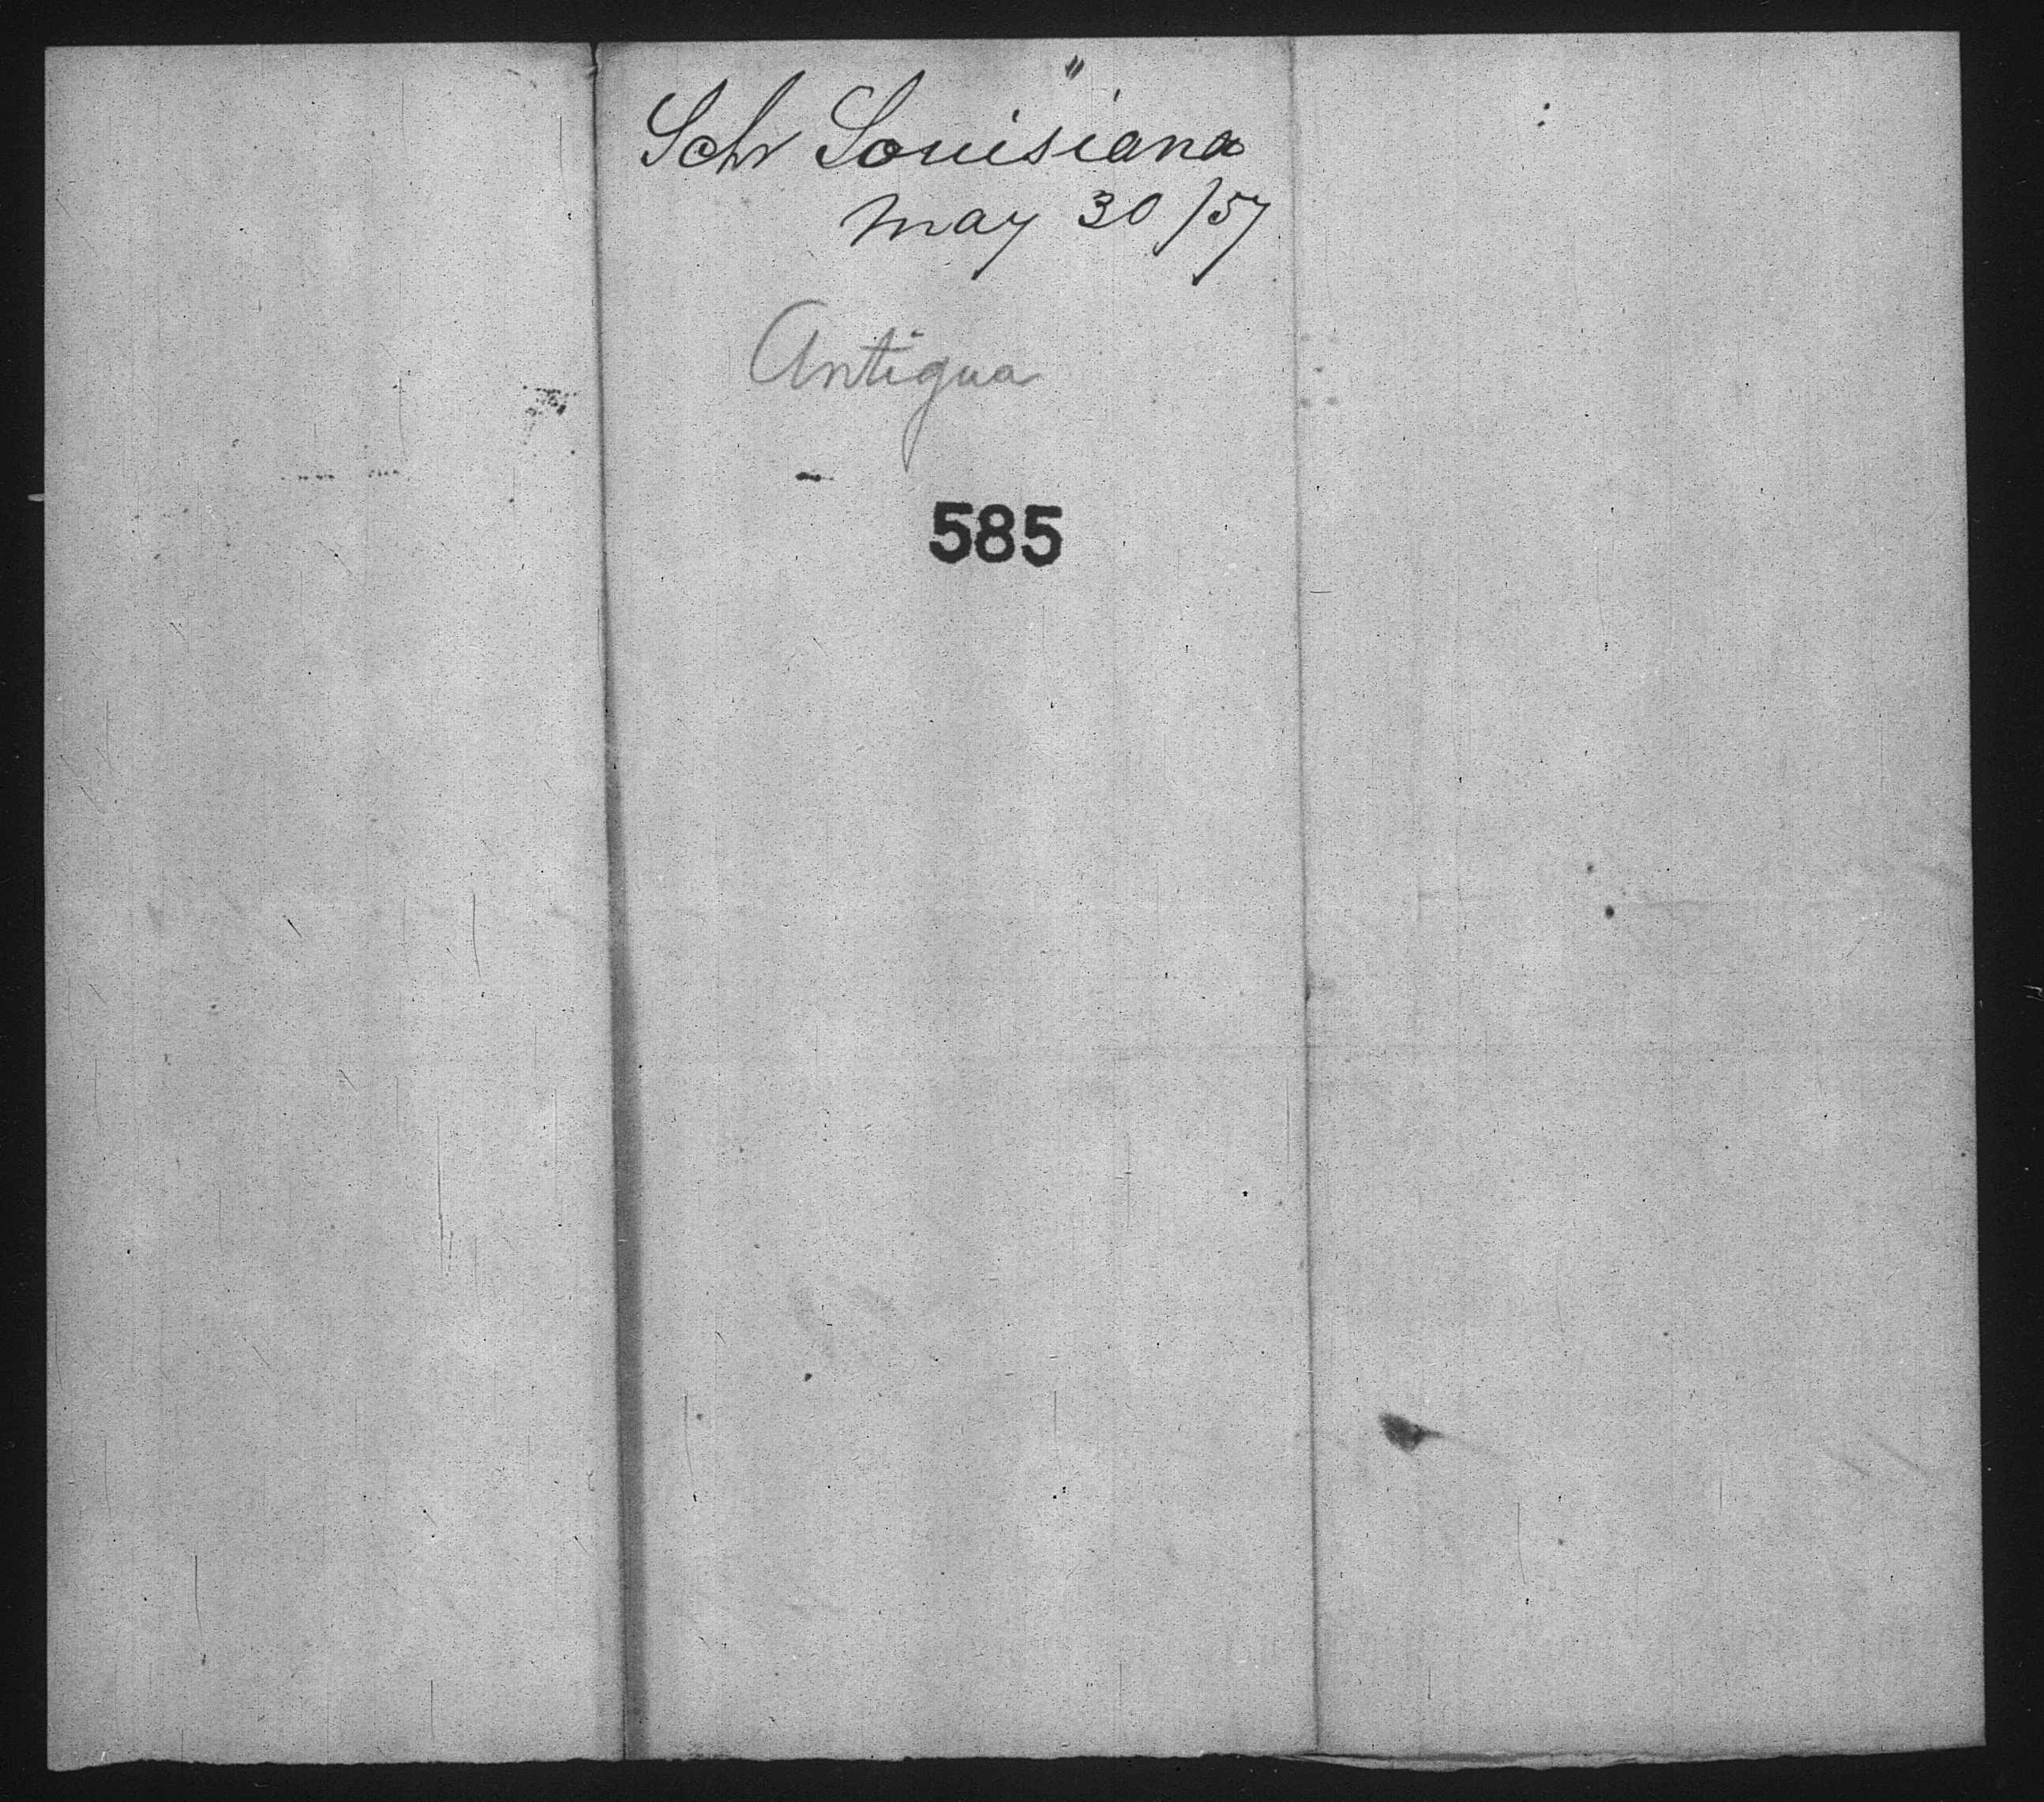 Schr Louisiana
May 30/57
Antigua
585